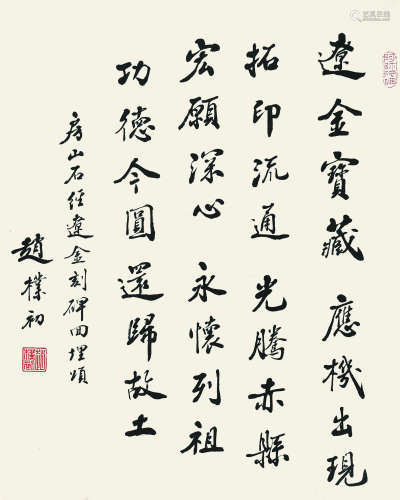 遼金寶藏 應機出現
拓印流通 光騰赤縣
宏願深心 永懷列祖
功德今圓 還歸故土
房山石經遼金刻碑回埋頌
趙樸初